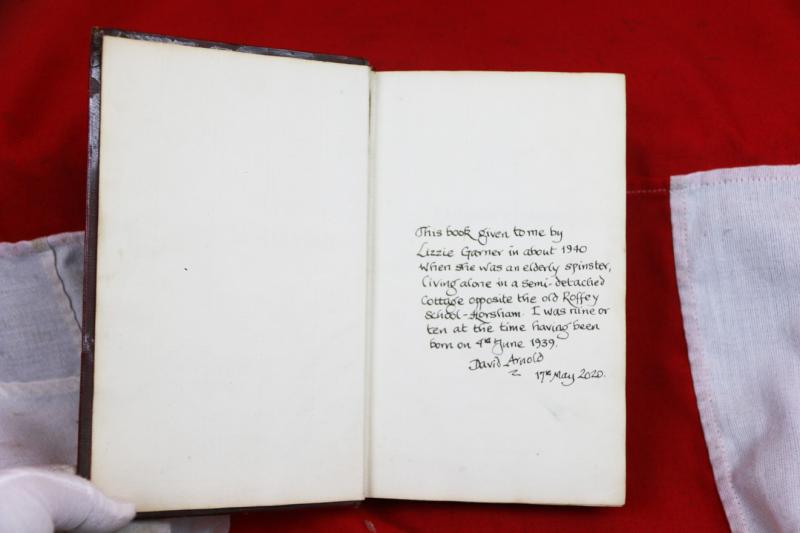 This book given to me by
Lizzie Garner in about 1940
when she was an elderly spinster,
living alone in a semi-detached
Cottage opposite the old Roffey
School-Horsham. I was nine or
ten at the time having been
born on 4th June 1939.
David Arnold
17th May 2020.